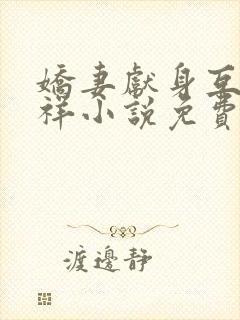 嬌妻獻身互
祥小說免費
渡邊靜